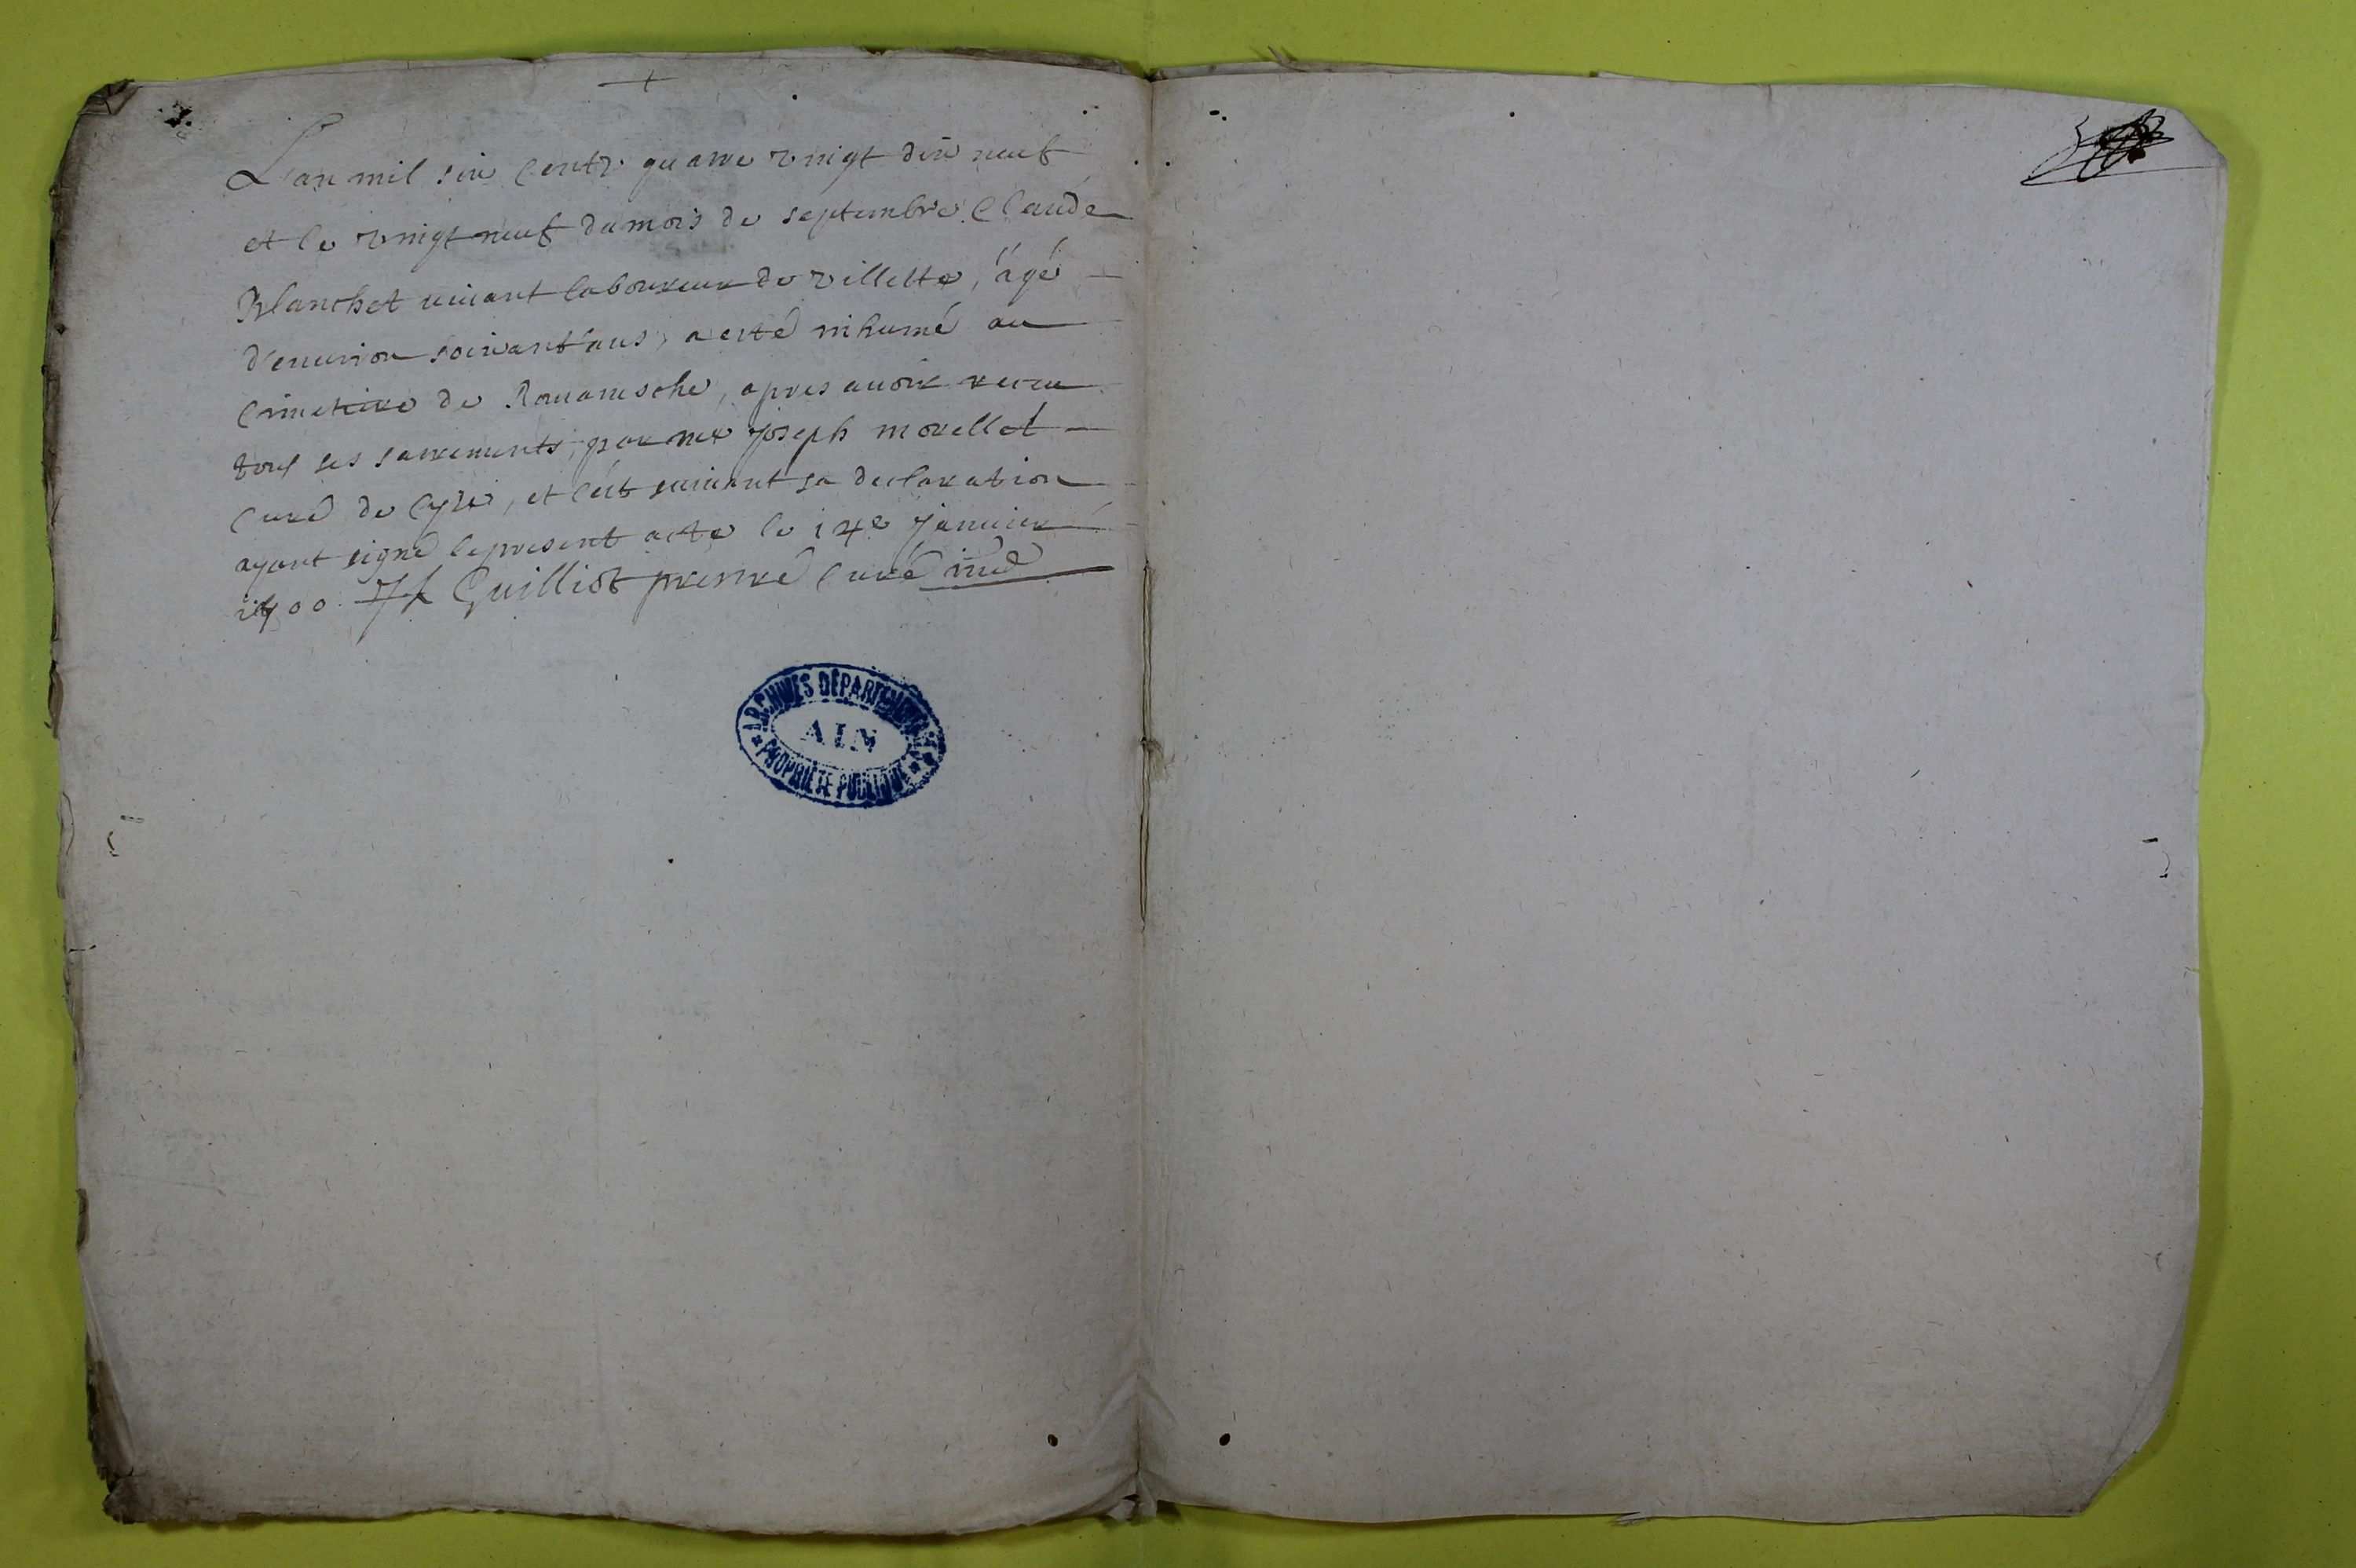 L'an mil six cents quatre vingt dix neuf
et le vingt neuf du mois de septembre Claude
Blanchet vivant laboureur de villette, âgé
d'environ soixant ans, a esté inhumé au
cimetiere de Romanesche, apres avoir receu
tous ses sacrements, par me joseph morellet
curé de Cyzé, et c'est suivant sa declaration
ayant signé le present acte le 14e janvier
1700. Guilliot prestre curé
ARCHIVES DÉPARTEMENTALES
AIN
PROPRIÉTÉ PUBLIQUE